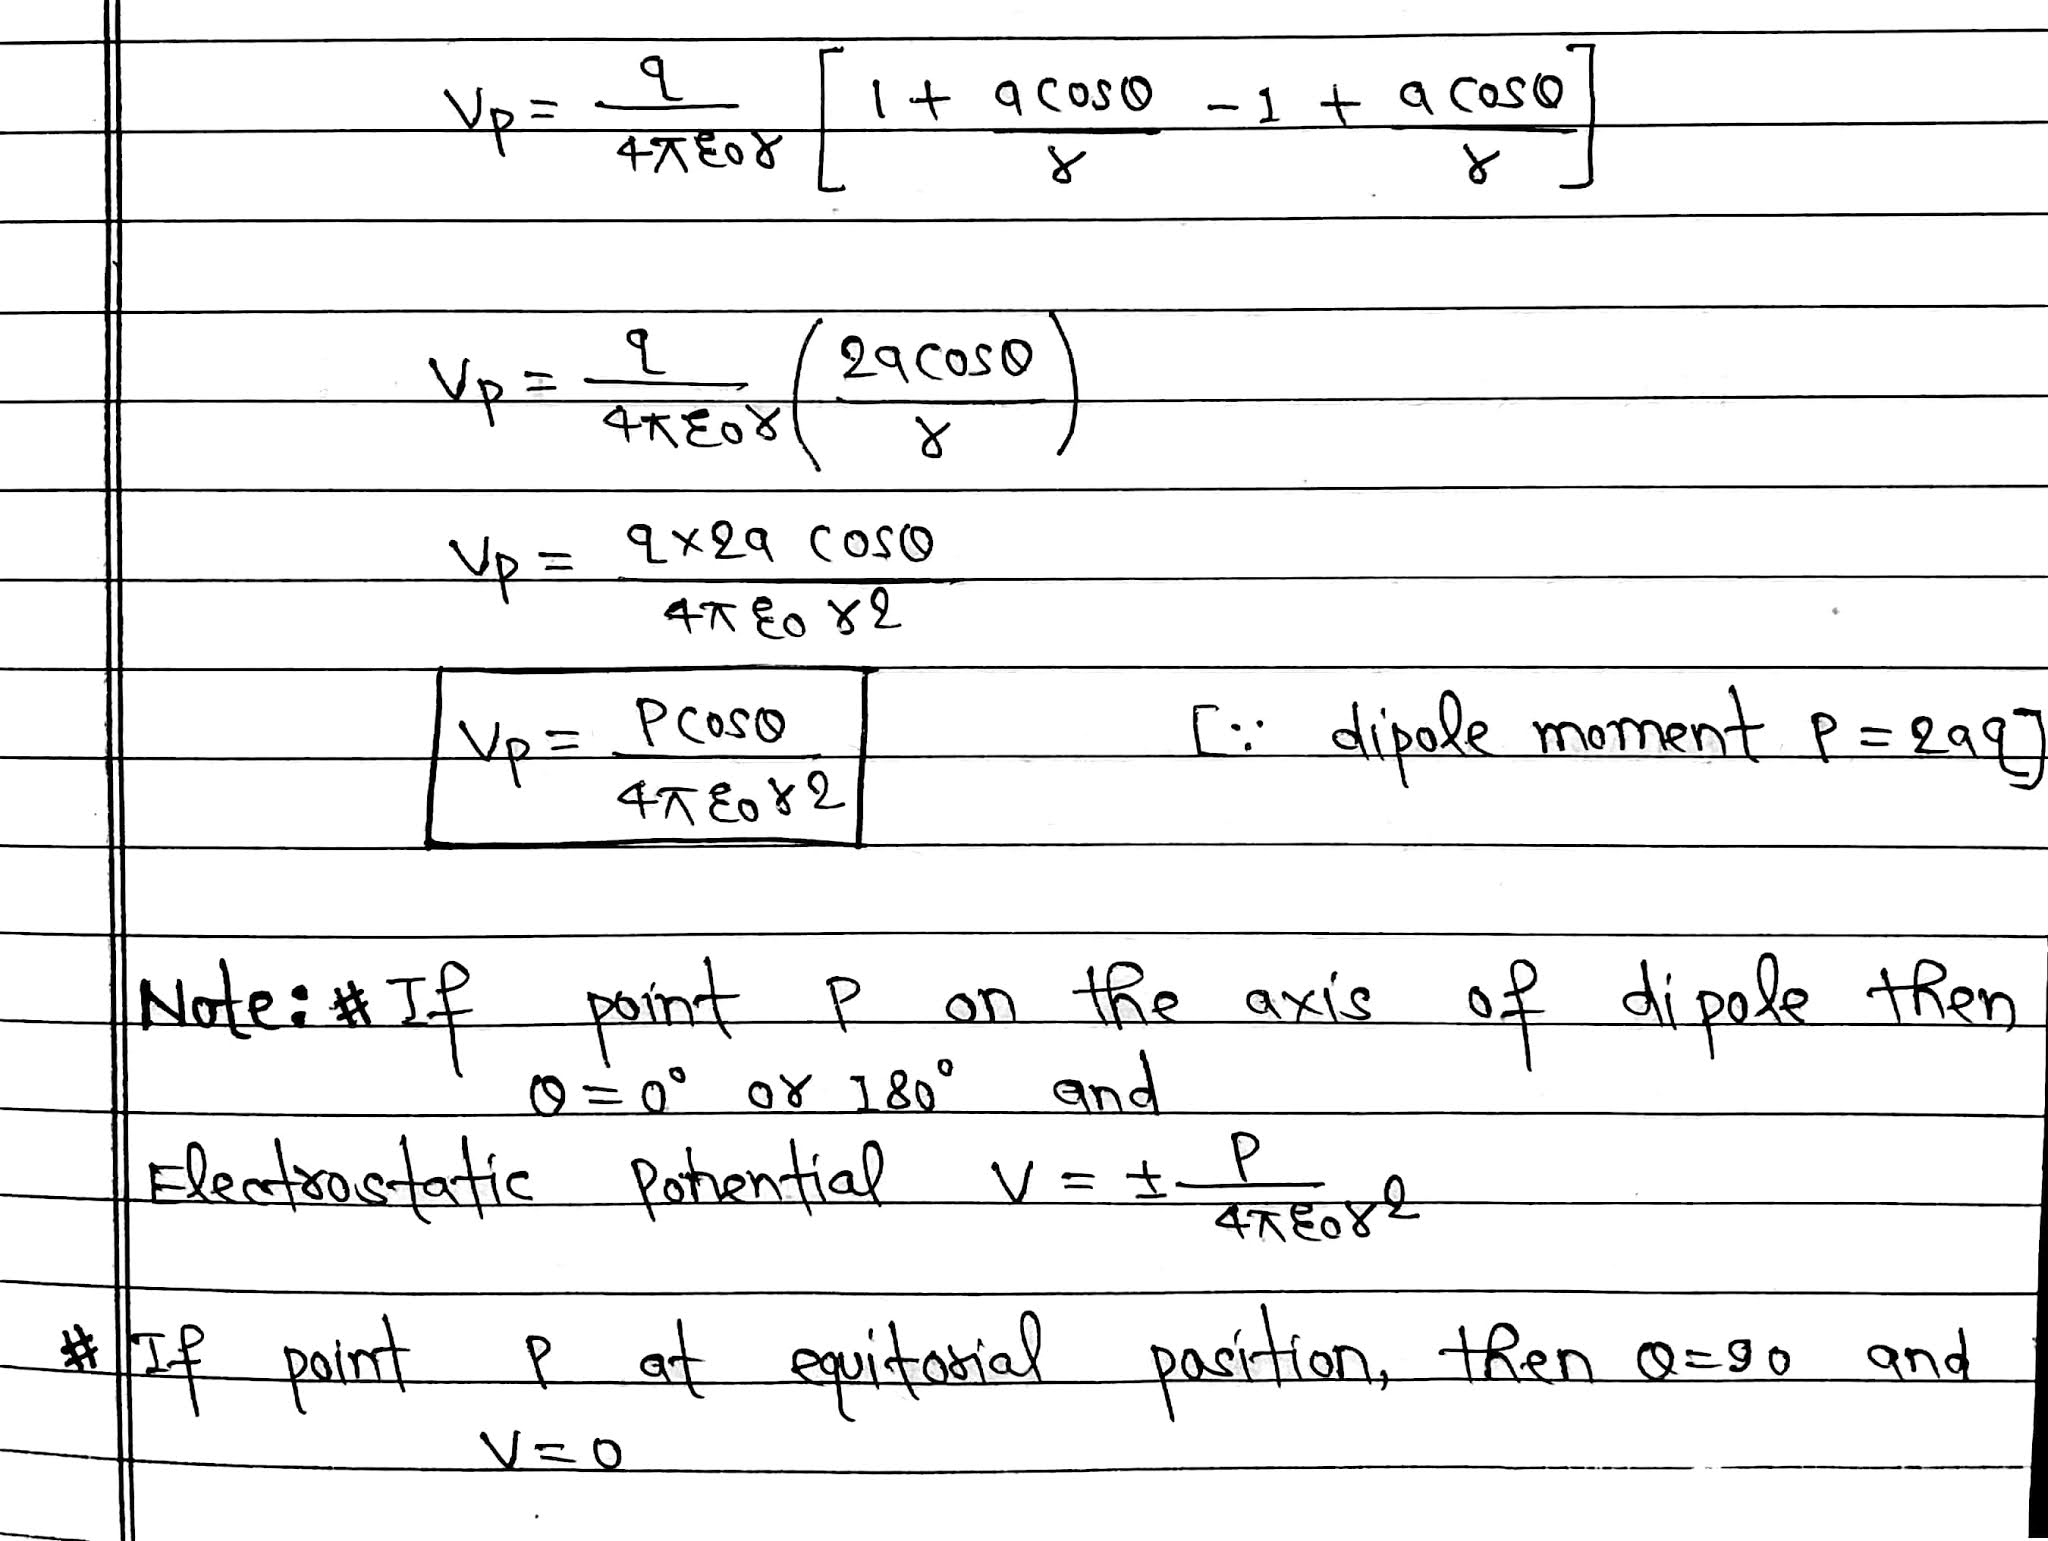 Vp = q/4πε0r [1 + a cosθ/r - 1 + a cosθ/r]
Vp = q/4πε0r (2a cosθ/r)
Vp = q×2a cosθ/4πε0 r2
Vp = P cosθ/4πε0 r2 [∵ dipole moment P = 2aq]
Note: # If point P on the axis of dipole then
θ = 0° or 180° and
Electrostatic Potential V = ± P/4πε0r2
# If point P at equitorial position, then θ = 90 and
V = 0